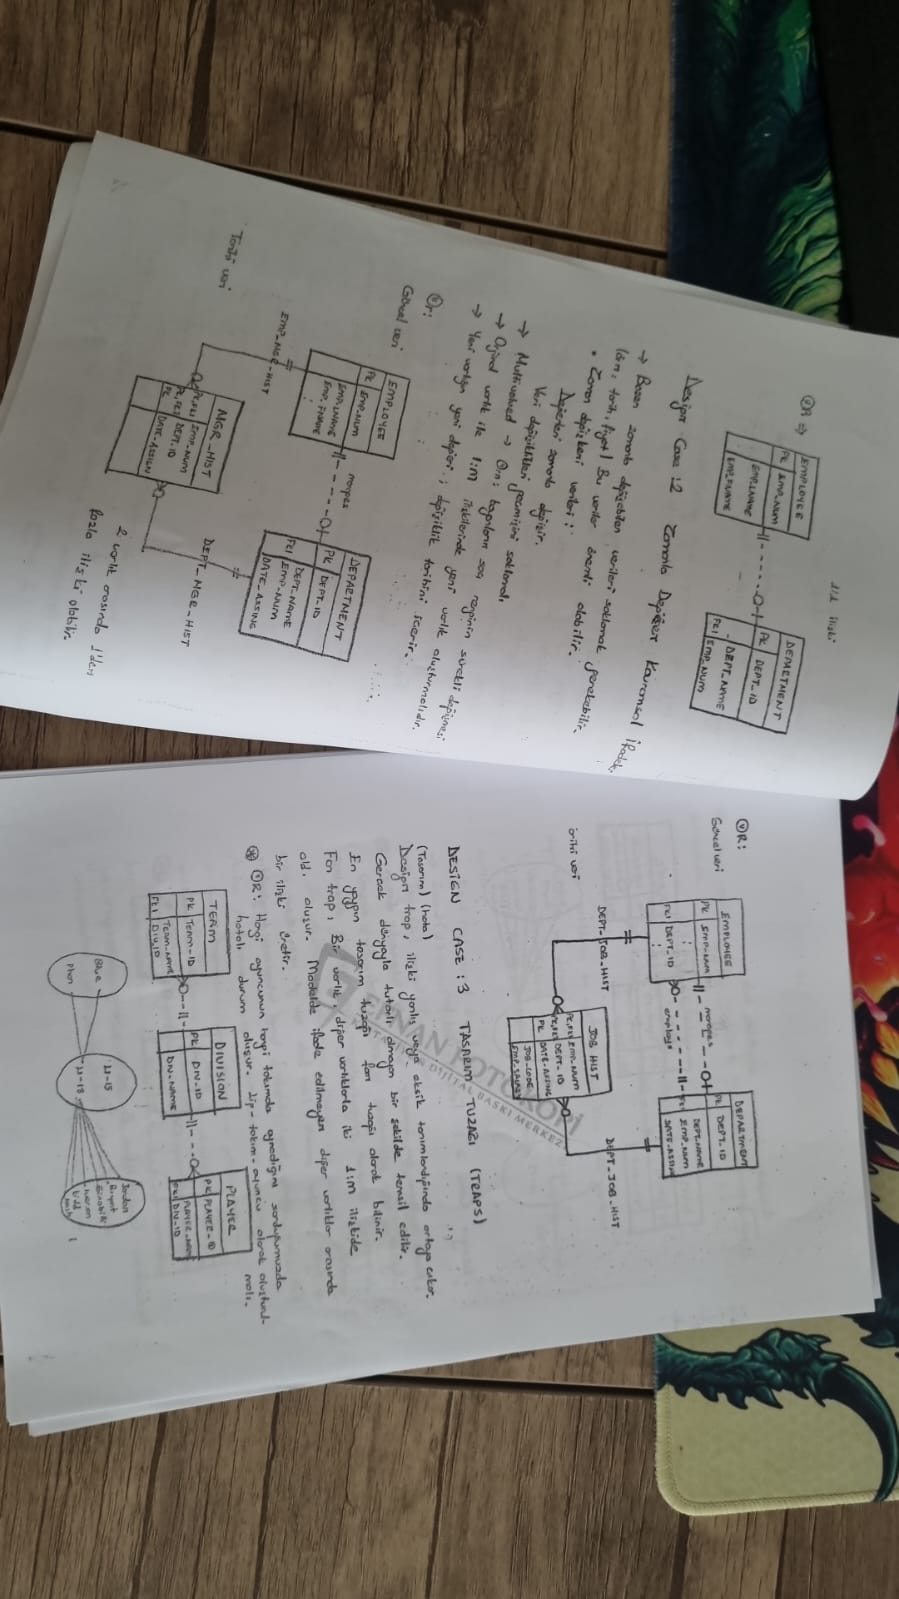 ÖR ⇒
1/1 ilişki
EMPLOYEE
PK EMP_NUM
EMP_LNAME
EMP_FNAME
DEPARTMENT
PK DEPT_ID
DEPT_NAME
FK1 EMP_NUM
Design Case : 2
→ Bazen zamanla değişebilen verileri saklamak gerekebilir.
Bu veriler önemli olabilir.
• Zaman değişkeni verileri :
Değerleri zamanla değişir.
Veri değişiklikleri geçmişini saklandı
→ Multivalued → Ör: bayanların saç renginin sürekli değişmesi
→ Orjinal varlık ile 1:M ilişkilerinde yeni varlık oluşturmalıdır.
→ Yeni varlığın yeni değeri; değişiklik tarihini içerir.
Ör:
Güncel veri
EMPLOYEE
PK EMP_NUM
EMP_LNAME
EMP_FNAME
manages
DEPARTMENT
PK DEPT_ID
DEPT_NAME
FK1 EMP_NUM
EMP_MGR_HIST
Tarihi veri
MGR_HIST
PK,FK1 EMP_NUM
PK,FK2 DEPT_ID
PK DATE_ASSIGN
DEPT_MGR_HIST
2 varlık arasında 1'den
fazla ilişki olabilir.
ÖR:
Güncel veri
EMPLOYEE
PK EMP_NUM
FK1 DEPT_ID
manages
employs
DEPARTMENT
PK DEPT_ID
DEPT_NAME
EMP_NUM
DEPT_JOB_HIST
JOB HIST
PK,FK1 EMP_NUM
DEPT_ID
JOB_CODE
DEPT_JOB_HIST
DESIGN CASE : 3 TASARIM TUZAĞI (TRAPS)
(Tasarım) (hata)
Design trap, ilişki yanlış veya eksik tanımlandığında ortaya çıkar.
Gerçek dünyayla tutarlı olmayan bir şekilde temsil edilir.
En yaygın tasarım tuzağı fan tuzağı olarak bilinir.
Fan trap; Bir varlık, diğer varlıklarla iki 1:M ilişkide
old. oluşur. Modelde ifade edilmeyen diğer varlıklar arasında
bir ilişki üretir.
ÖR: Hangi oyuncunun hangi takımda oynadığını sorduğumuzda
hatalı durum oluşur. Lig-takım-oyuncu olarak oluşturul-
malı.
TEAM
PK TEAM_ID
TEAM_NAME
FK1 DIV_ID
DIVISION
PK DIV_ID
DIV_NAME
PLAYER
PK PLAYER_ID
PLAYER_NAME
FK1 DIV_ID
Jordan
SINAN FOTOKOPİ
DİJİTAL BASKI MERKEZİ